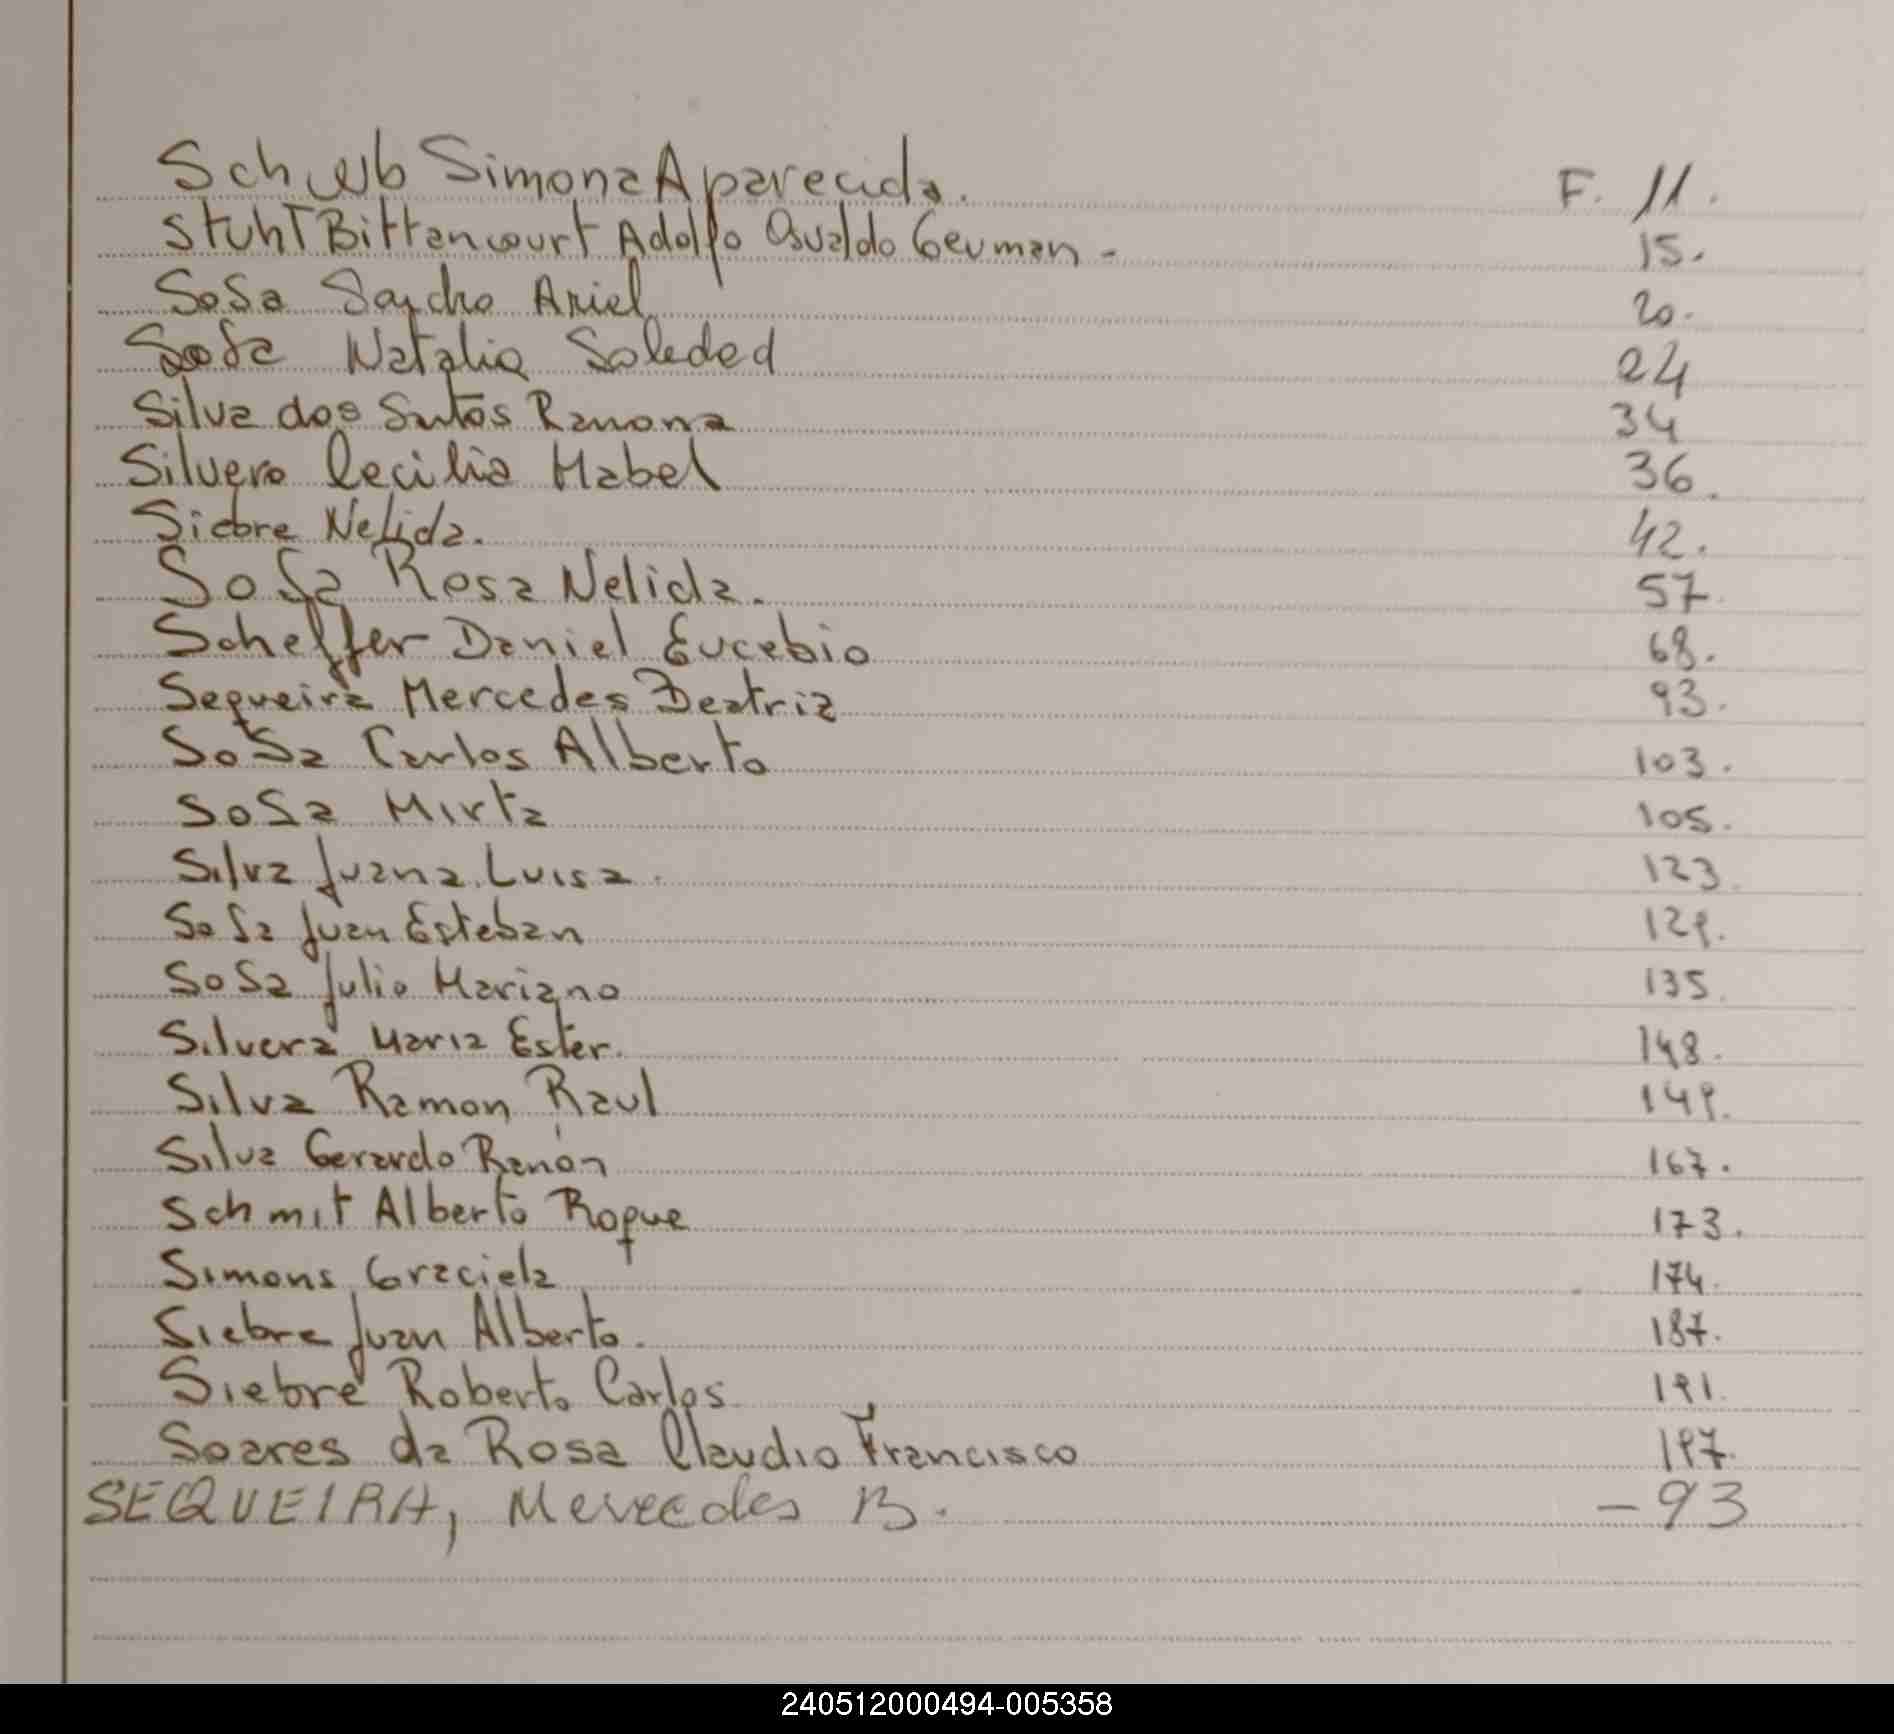 Schwb Simona Aparecida. F. 11.
Stuht Bittencourt Adolfo Osvaldo German - 15.
Sosa Sancho Ariel 20.
Sosa Natalia Soledad 24
Silva dos Santos Ramona 34
Silvero Cecilia Mabel 36.
Siebre Nelida. 42.
Sosa Rosa Nelida. 57.
Scheffer Daniel Eucebio 68.
Sequeira Mercedes Beatriz 93.
Sosa Carlos Alberto 103.
Sosa Mirta 105.
Silva Juana Luisa. 123.
Sosa Juan Esteban 129.
Sosa Julio Mariano 135.
Silvera Maria Ester. 148.
Silva Ramon Raul 149.
Silva Gerardo Ramón 167.
Schmit Alberto Roque 173.
Simons Graciela 174.
Siebre Juan Alberto. 187.
Siebre Roberto Carlos 191.
Soares da Rosa Claudio Francisco 197.
SEQUEIRA, Mercedes B. - 93
240512000494-005358